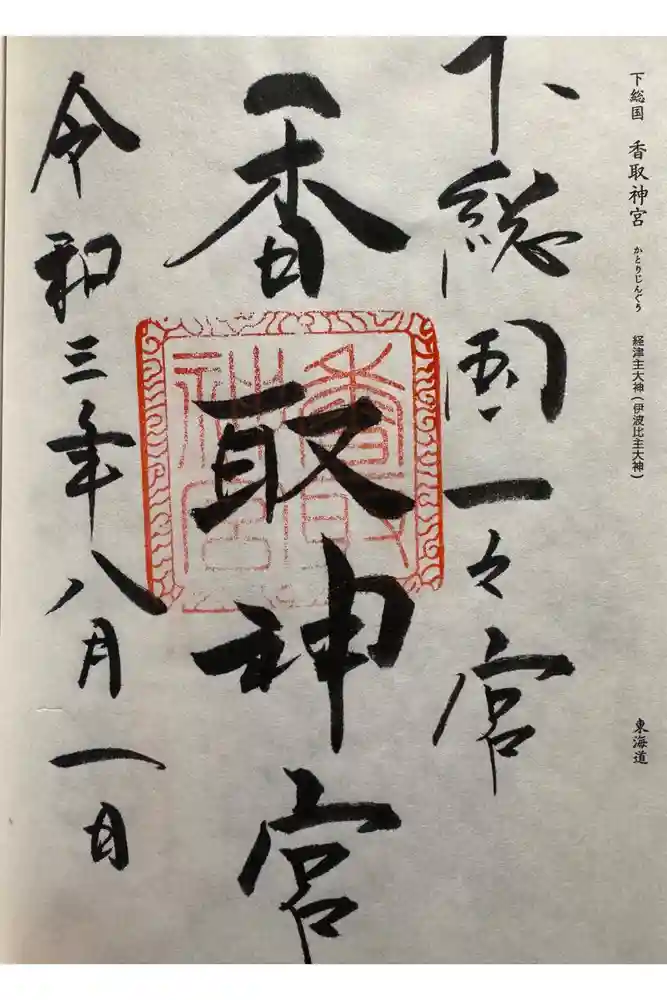 下総国 香取神宮 かとりじんぐう 経津主大神(伊波比主大神)
東海道
下総国一々宮
香取神宮
香取神宮
令和三年八月一日